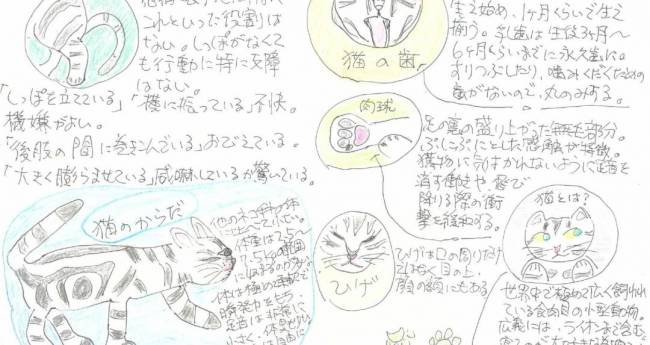 これといった役割は
ない。しっぽがなくて
も行動に特に支障
はない。
「しっぽを立てている」
機嫌がよい。
「横に振っている」不快。
「後股の間に巻きこんでいる」おびえている。
「大きく膨らませている」威嚇しているか驚いている。
猫の歯
生え始め、1ヶ月くらいで生え
揃う。乳歯は生後3ヶ月〜
6ヶ月くらいまでに永久歯に。
すりつぶしたり、噛みくだくための
歯がないので、丸のみする。
肉球
足の裏の盛り上がった無毛部分。
ぷにぷにとした感触が特徴。
獲物に気づかれないように足音を
消す働きや
降りる際の衝
撃を緩和する。
猫のからだ
他のネコ科の体
に比べて小さい。
体重は2.5〜
7.5kgの範囲
瞬発力をもち、
足音は非常に
小さく、
ひげ
ひげは口の周りだけ
ではなく目の上、
顔の横にもある
猫とは？
世界中で極めて広く飼われ
ている食肉目の小型動物。
広義には、ライオンまで含む、